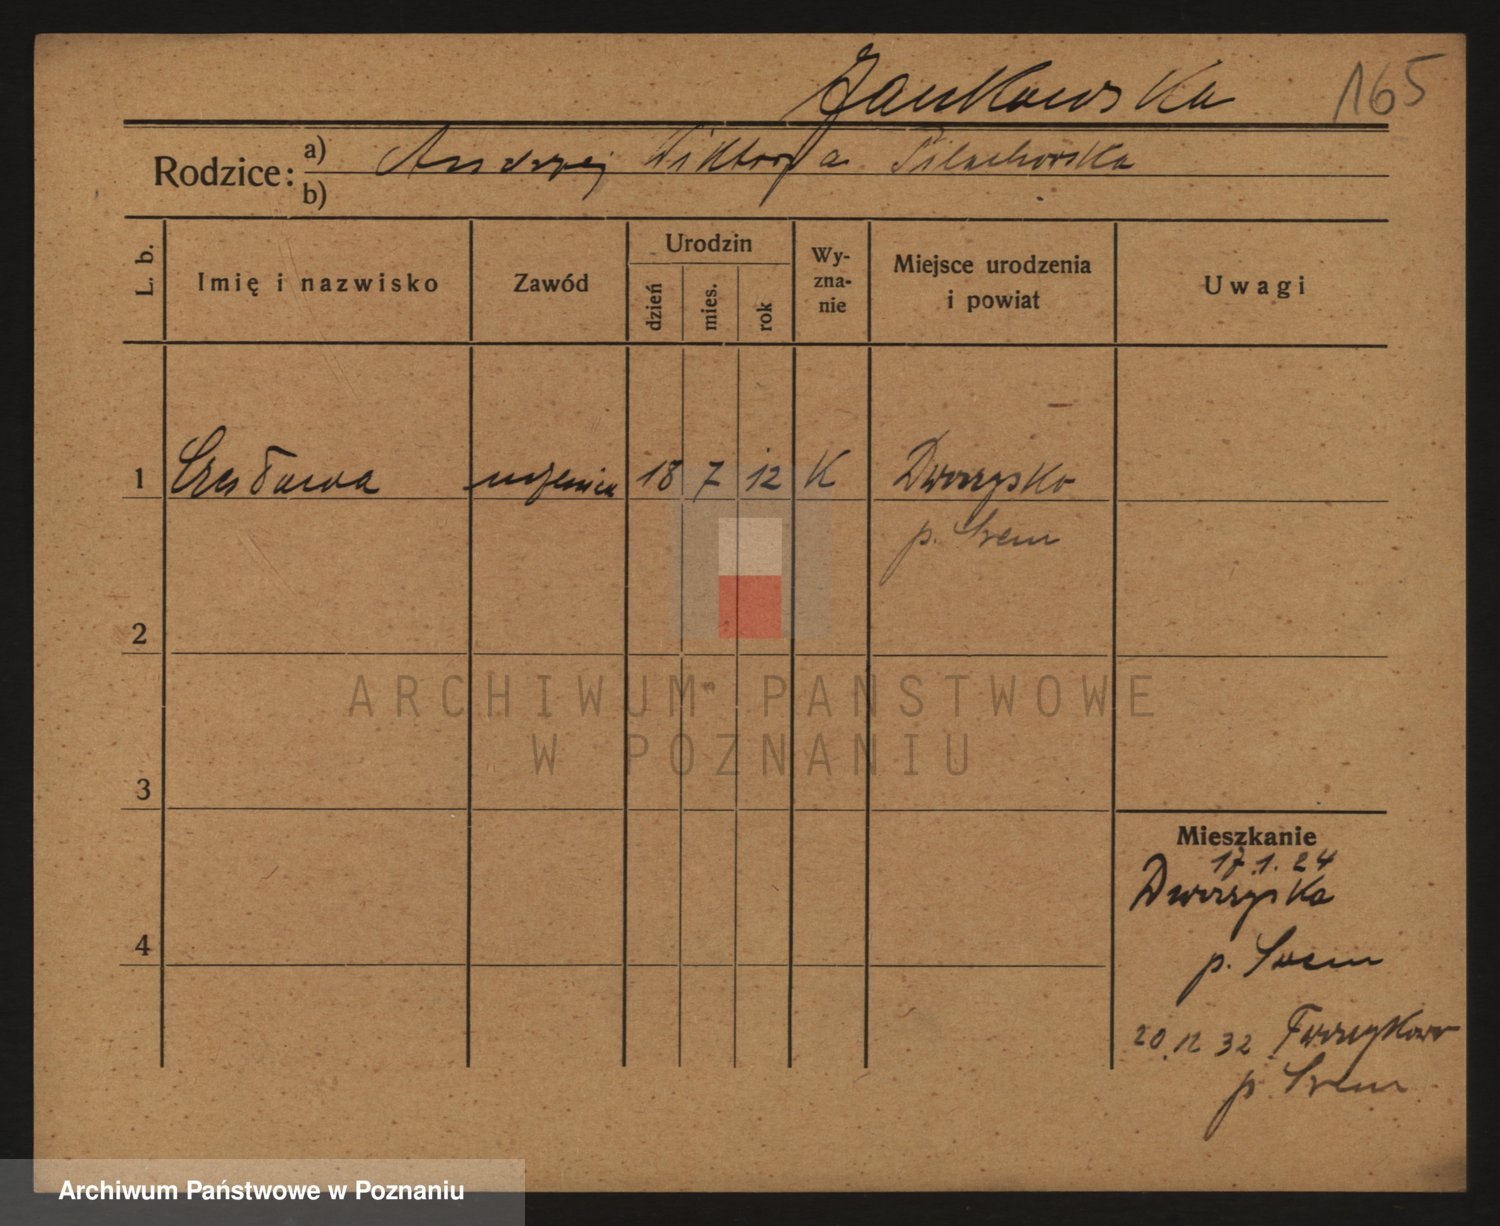 Jankowska 165
Rodzice: a) Andrzej Wiktorya
b)
L. b. Imię i nazwisko Zawód Urodzin dzień mies. rok Wy-zna-nie Miejsce urodzenia i powiat Uwagi
1 Czesława uczenica 18 7 12 K Dworzysko
p. Srem
2
ARCHIWUM PAŃSTWOWE
W POZNANIU
3
Mieszkanie
17.1.24
Dworzyska
4
p. Srem
20.12 32
p. Srem
Archiwum Państwowe w Poznaniu